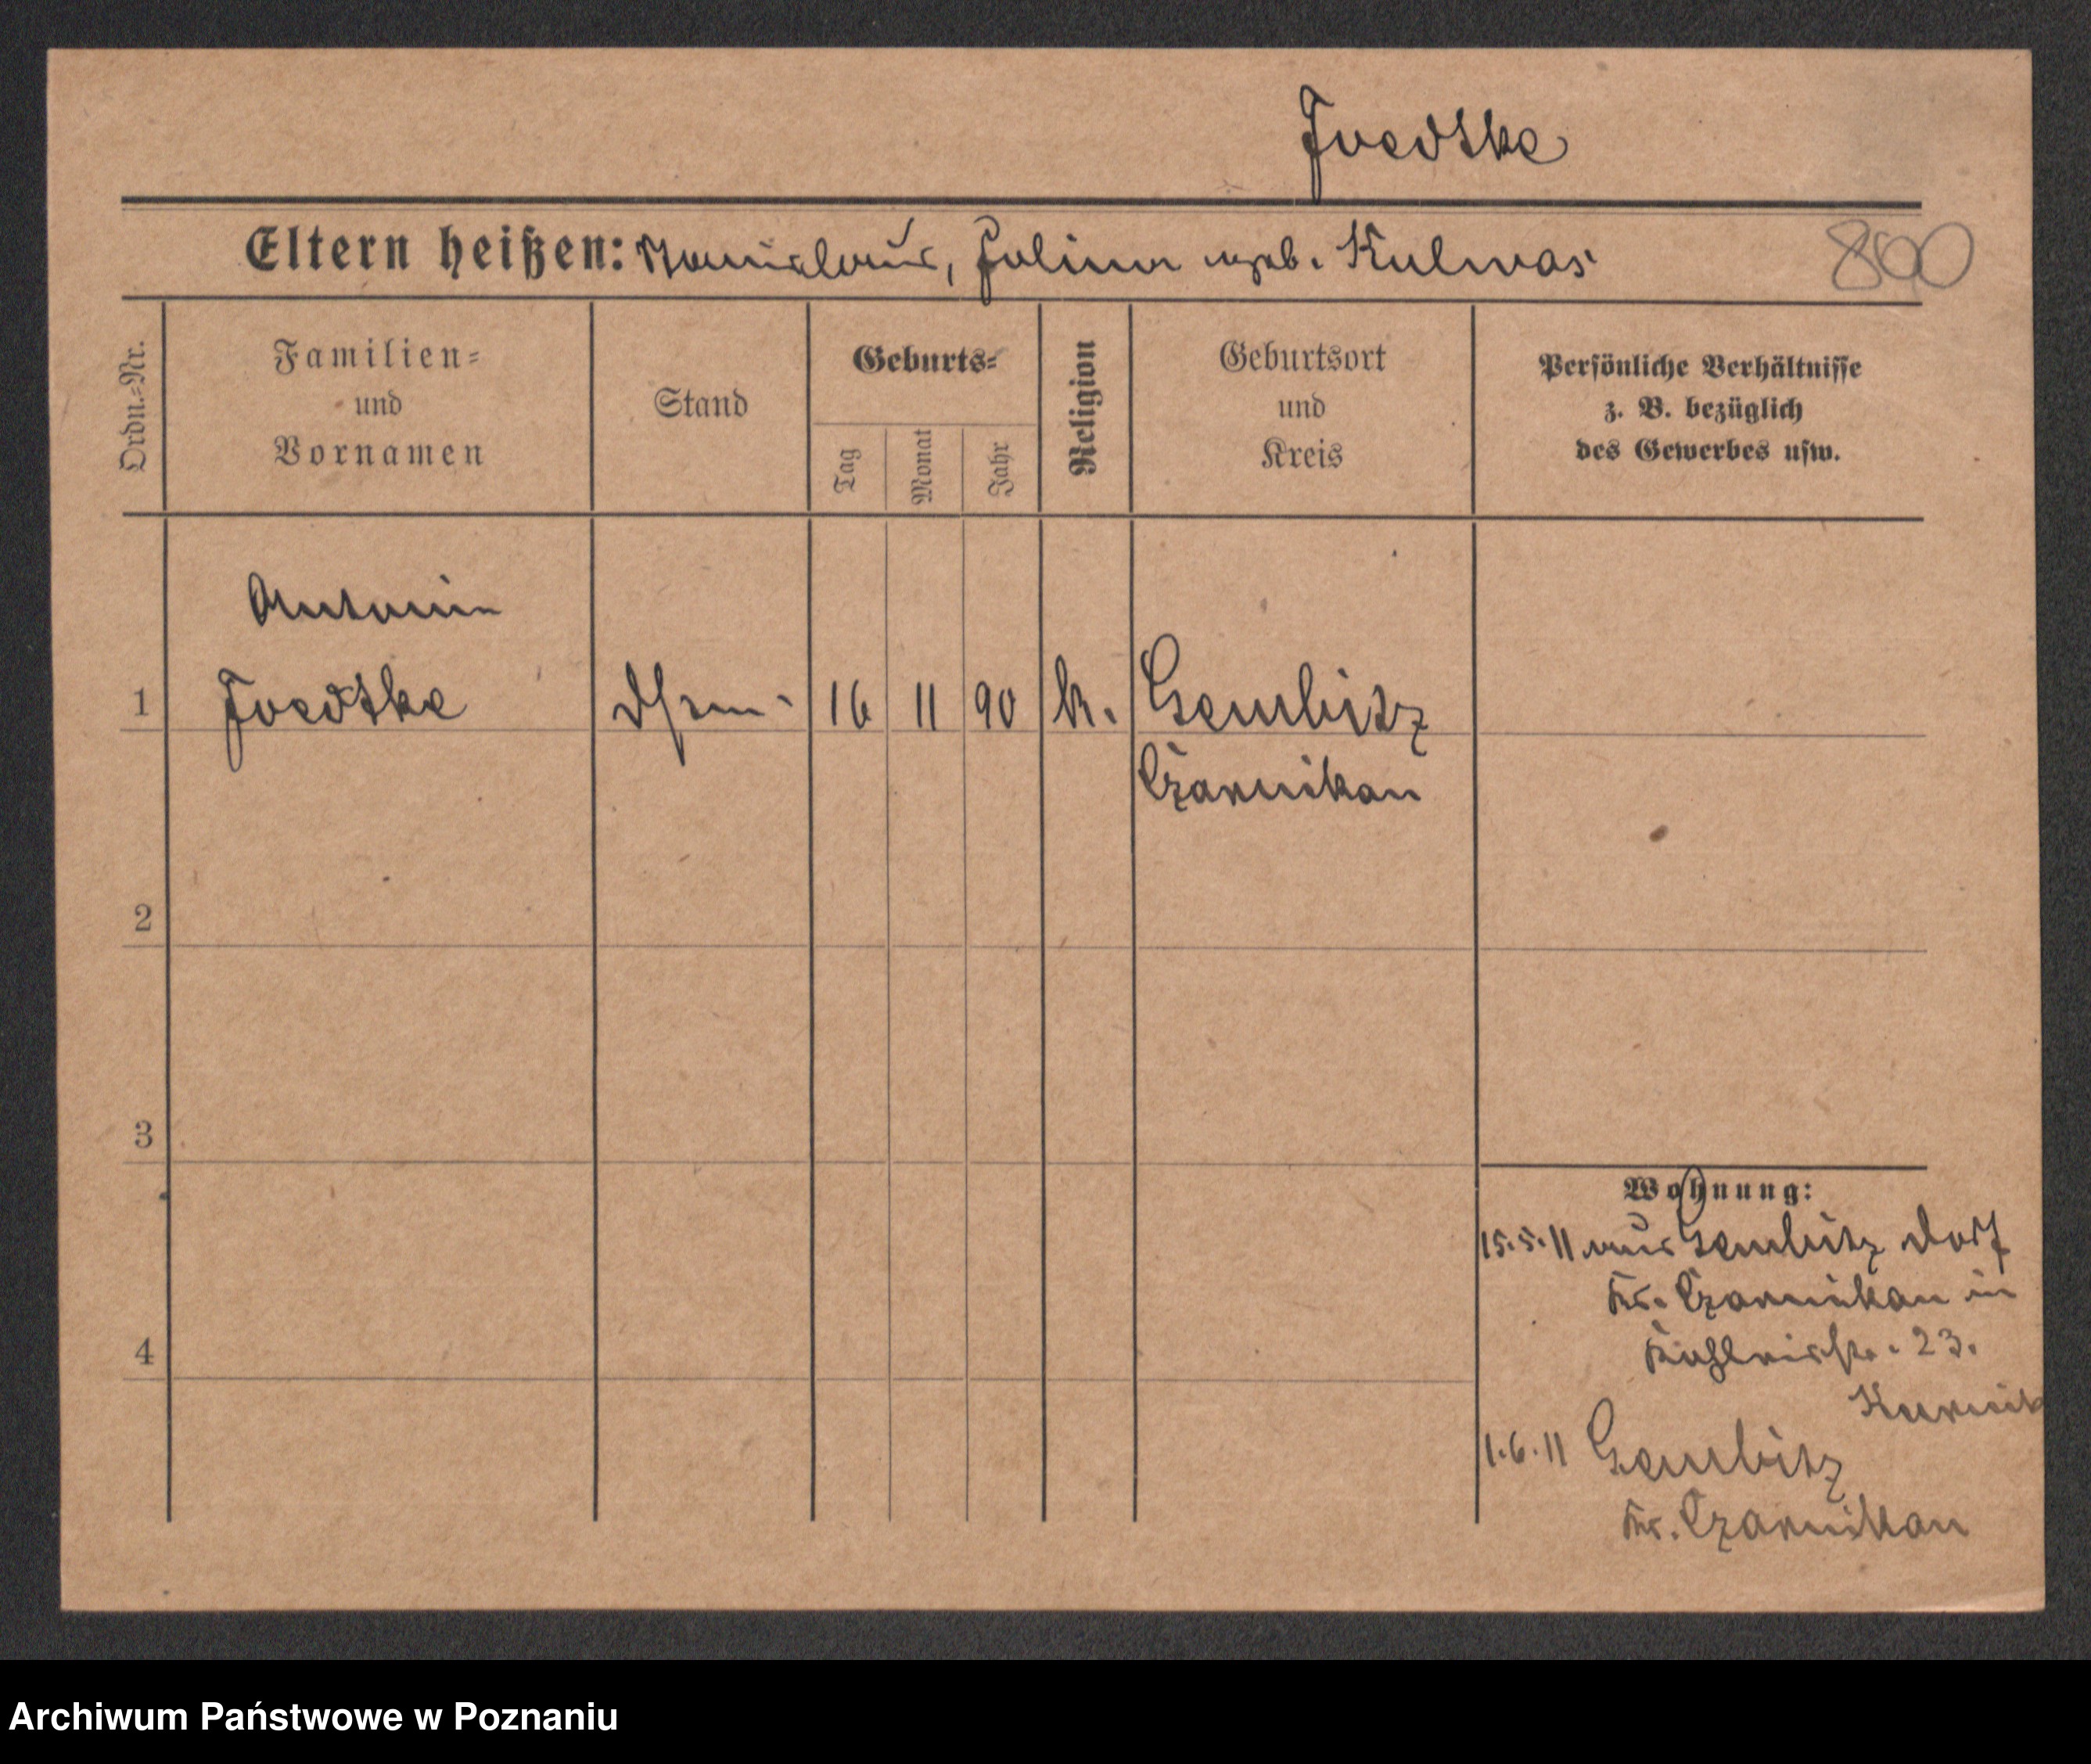 Joedtke
Eltern heißen: Stanislaus, Julina geb. Kulwas
800
Ordn.-Nr.
Familien-
und
Vornamen
Stand
Geburts-
Tag
Monat
Jahr
Religion
Geburtsort
und
Kreis
Persönliche Verhältnisse
z. B. bezüglich
des Gewerbes usw.
Antonin
1 Joedtke 16 11 90 k. Gembitz
Czarnikau
2
3
4
Wohnung:
15.5.11 aus Gembitz Dorf
Kr. Czarnikau in
23.
1.6.11 Gembitz
Kr. Czarnikau
Archiwum Państwowe w Poznaniu